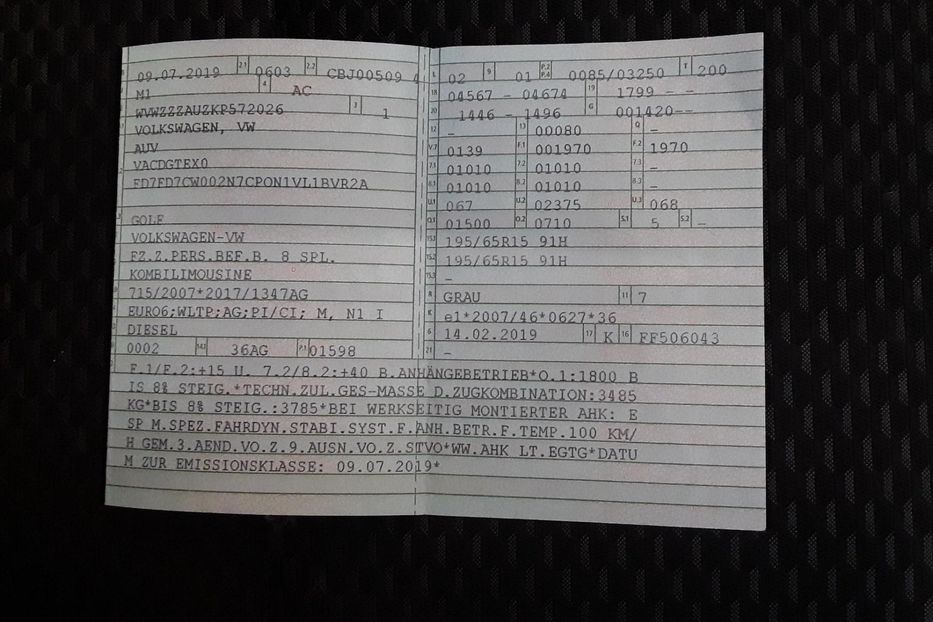 09.07.2019 2.1 0603 2.2 CBJ00509 4
M1 4 AC
WVWZZZAUZKP572026 3 1
VOLKSWAGEN, VW
AUV
VACDGTEX0
FD7FD7CW002N7CPON1VL1BVR2A
GOLF
VOLKSWAGEN-VW
FZ.Z.PERS.BEF.B. 8 SPL.
KOMBILIMOUSINE
715/2007*2017/1347AG
EURO6;WLTP;AG;PI/CI; M, N1 I
DIESEL
0002 14.1 36AG P.1 01598
L 02 9 01 P.2 P.4 0085/03250 T 200
18 04567 - 04674 19 1799 - -
20 1446 - 1496 G 001420--
12 - 13 00080 Q -
V.7 0139 F.1 001970 F.2 1970
7.1 01010 7.2 01010 7.3 -
8.1 01010 8.2 01010 8.3 -
U.1 067 U.2 02375 U.3 068
O.1 01500 O.2 0710 S.1 5 S.2 -
15.1 195/65R15 91H
15.2 195/65R15 91H
15.3 -
R GRAU 11 7
K e1*2007/46*0627*36
6 14.02.2019 17 K 16 FF506043
21 -
F.1/F.2:+15 U. 7.2/8.2:+40 B.ANHÄNGEBETRIEB*O.1:1800 B
IS 8% STEIG.*TECHN.ZUL.GES-MASSE D.ZUGKOMBINATION:3485
KG*BIS 8% STEIG.:3785*BEI WERKSEITIG MONTIERTER AHK: E
SP M.SPEZ.FAHRDYN.STABI.SYST.F.ANH.BETR.F.TEMP.100 KM/
H GEM.3.AEND.VO.Z.9.AUSN.VO.Z.STVO*WW.AHK LT.EGTG*DATU
M ZUR EMISSIONSKLASSE: 09.07.2019*